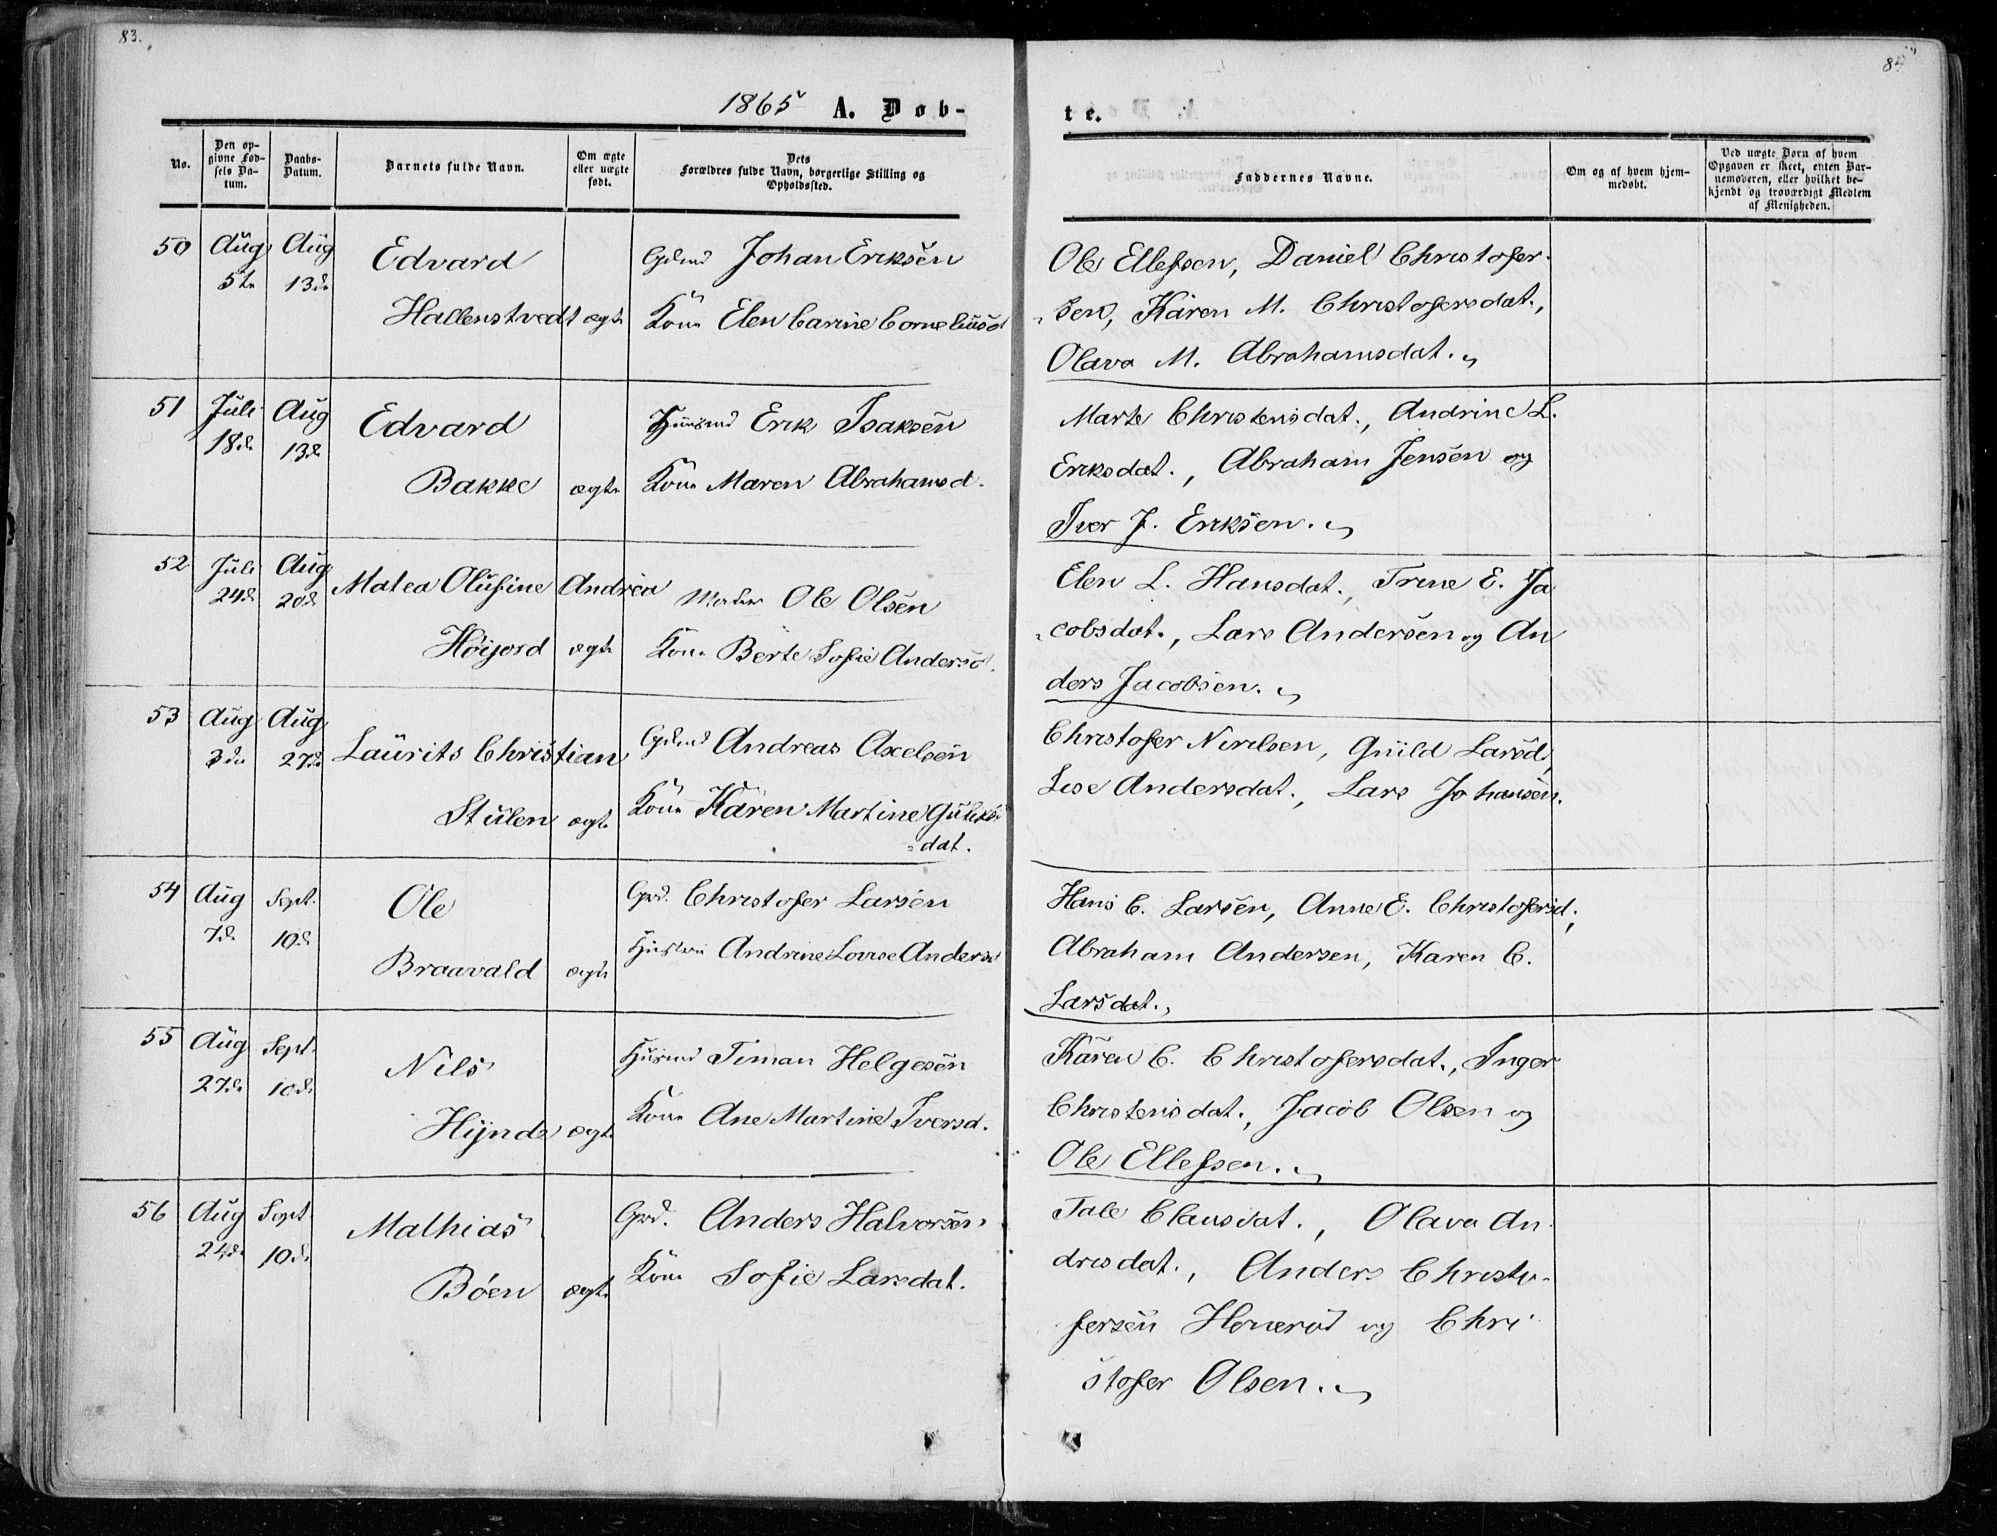 83.
1865 A. Døb-
No.
Den opgivne Fødsels Datum.
Daabs-Datum.
Barnets fulde Navn.
Om ægte eller uægte født.
Dets Forældres fulde Navn, borgerlige Stilling og Opholdssted.
50 Aug 5te Aug 13de Edvard Gdmd Johan Eriksen
Hallenstvedt ægte Kone Elen Carine Corneliusd
51 Juli 18de Aug 13de Edvard Huusmd Erik Isaksen
Bakke ægte Kone Maren Abrahamsd.
52 Juli 24de Aug 20de Matea Olufine Andrea Ole Olsen
Høijord ægte Kone Berte Sofie Andersd.
53 Aug 3die Aug 27de Laurits Christian Gdmd Andreas Axelsen
Stulen ægte Kone Karen Martine Guliks-
dat.
54 Aug 7de Sept. 10de Ole Grd. Christofer Larsen
Braavald ægte Hustru Andrine Lovise Andersd
55 Aug 27de Sept. 10de Nils Husmd Timan Helgesen
Hynde ægte Kone Ane Martine Iversd.
56 Aug 24de Sept 10de Mathias Grd. Anders Halvorsen
Bøen ægte Kone Sofie Larsdat.
84
te.
Faddernes Navne.
Om og af hvem hjemmedøbt.
Ved uægte Børn af hvem Opgaven er skeet, enten Barnemoderen, eller hvilket bekjendt og troværdigt Medlem af Menigheden.
Ole Ellefsen, Daniel Christofer-
sen, Karen M. Christofersdat.,
Olava M. Abrahamsdat.
Marte Christensdat., Andrine L.
Eriksdat., Abraham Jensen og
Iver J. Eriksen.
Elen L. Hansdat., Trine E. Ja
cobsdat., Lars Andersen og An
ders Jacobsen.
Christofer Nirilsen, Guild Larsd,
Lise Andersdat., Lars Johansen.
Hans C. Larsen, Anne E. Christofersd.,
Abraham Andersen, Karen C.
Larsdat.,
Karen C. Christofersdat., Inger
Christensdat., Jacob Olsen og
Ole Ellefsen.
Tale Clausdat., Olava An-
dresdat., Anders Christo-
fersen Honerød og Chri-
stofer Olsen.